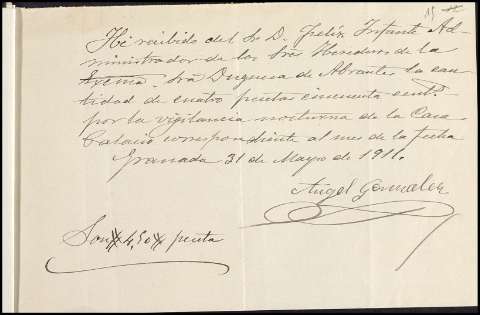 15
He recibido del Sr. D. Felix Infante Ad-
ministrador de los Sres Herederos de la
Excma. Sra Duquesa de Abrantes la can-
tidad de cuatro pesetas cincuenta cent.s
por la vigilancia nocturna de la Casa
Palacio correspondiente al mes de la fecha
Granada 31 de Mayo de 1911.
Angel Gonzalez
Son 4,50 peseta